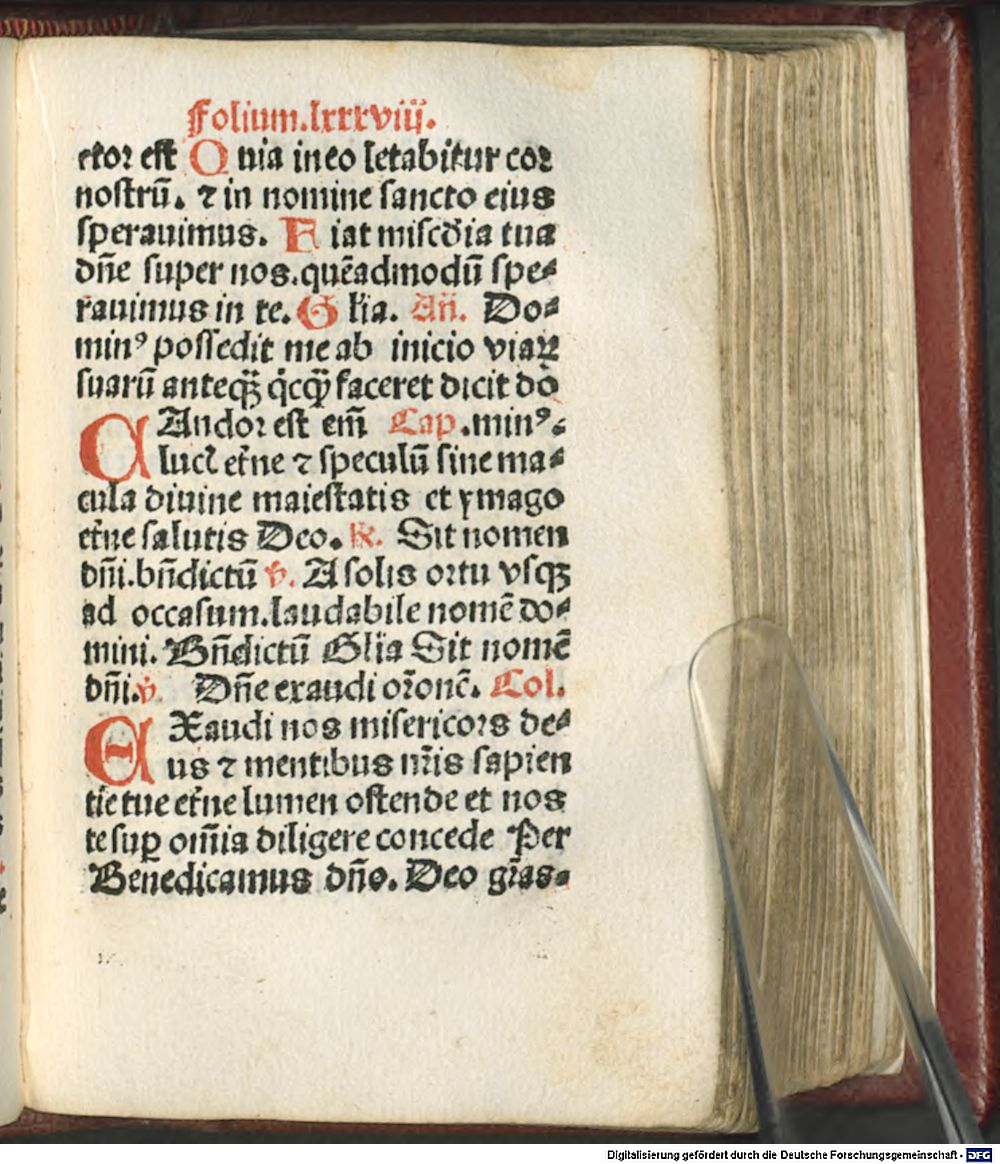 Folium.lxxxviij.
ctor est Quia in eo letabitur cor
nostrū. ⁊ in nomine sancto eius
sperauimus. Fiat miscdia tua
dn̄e super nos.quēadmodū spe⸗
rauimus in te. Glīa. An̄. Do⸗
minꝰ possedit me ab inicio viaꝝ
suarū anteqꝫ qicqꝫ faceret dicit dō
CAndor est em̄ Cap.minꝰ.⸗
lucꝭ et̄ne ⁊ speculū sine ma⸗
cula diuine maiestatis et ymago
et̄ne salutis Deo. ℟. Sit nomen
dn̄i.bn̄dictū ꝟ. A solis ortu vsqꝫ
ad occasum.laudabile nomē do⸗
mini. Bn̄dictū Glīa Sit nomē
dn̄i.ꝟ. Dn̄e exaudi or̄onē. Col.
EXaudi nos misericors de⸗
us ⁊ mentibus nr̄is sapien
tie tue et̄ne lumen ostende et nos
te suꝑ om̄ia diligere concede Per
Benedicamus dn̄o. Deo gr̄as⸗
Digitalisierung gefördert durch die Deutsche Forschungsgemeinschaft - DFG